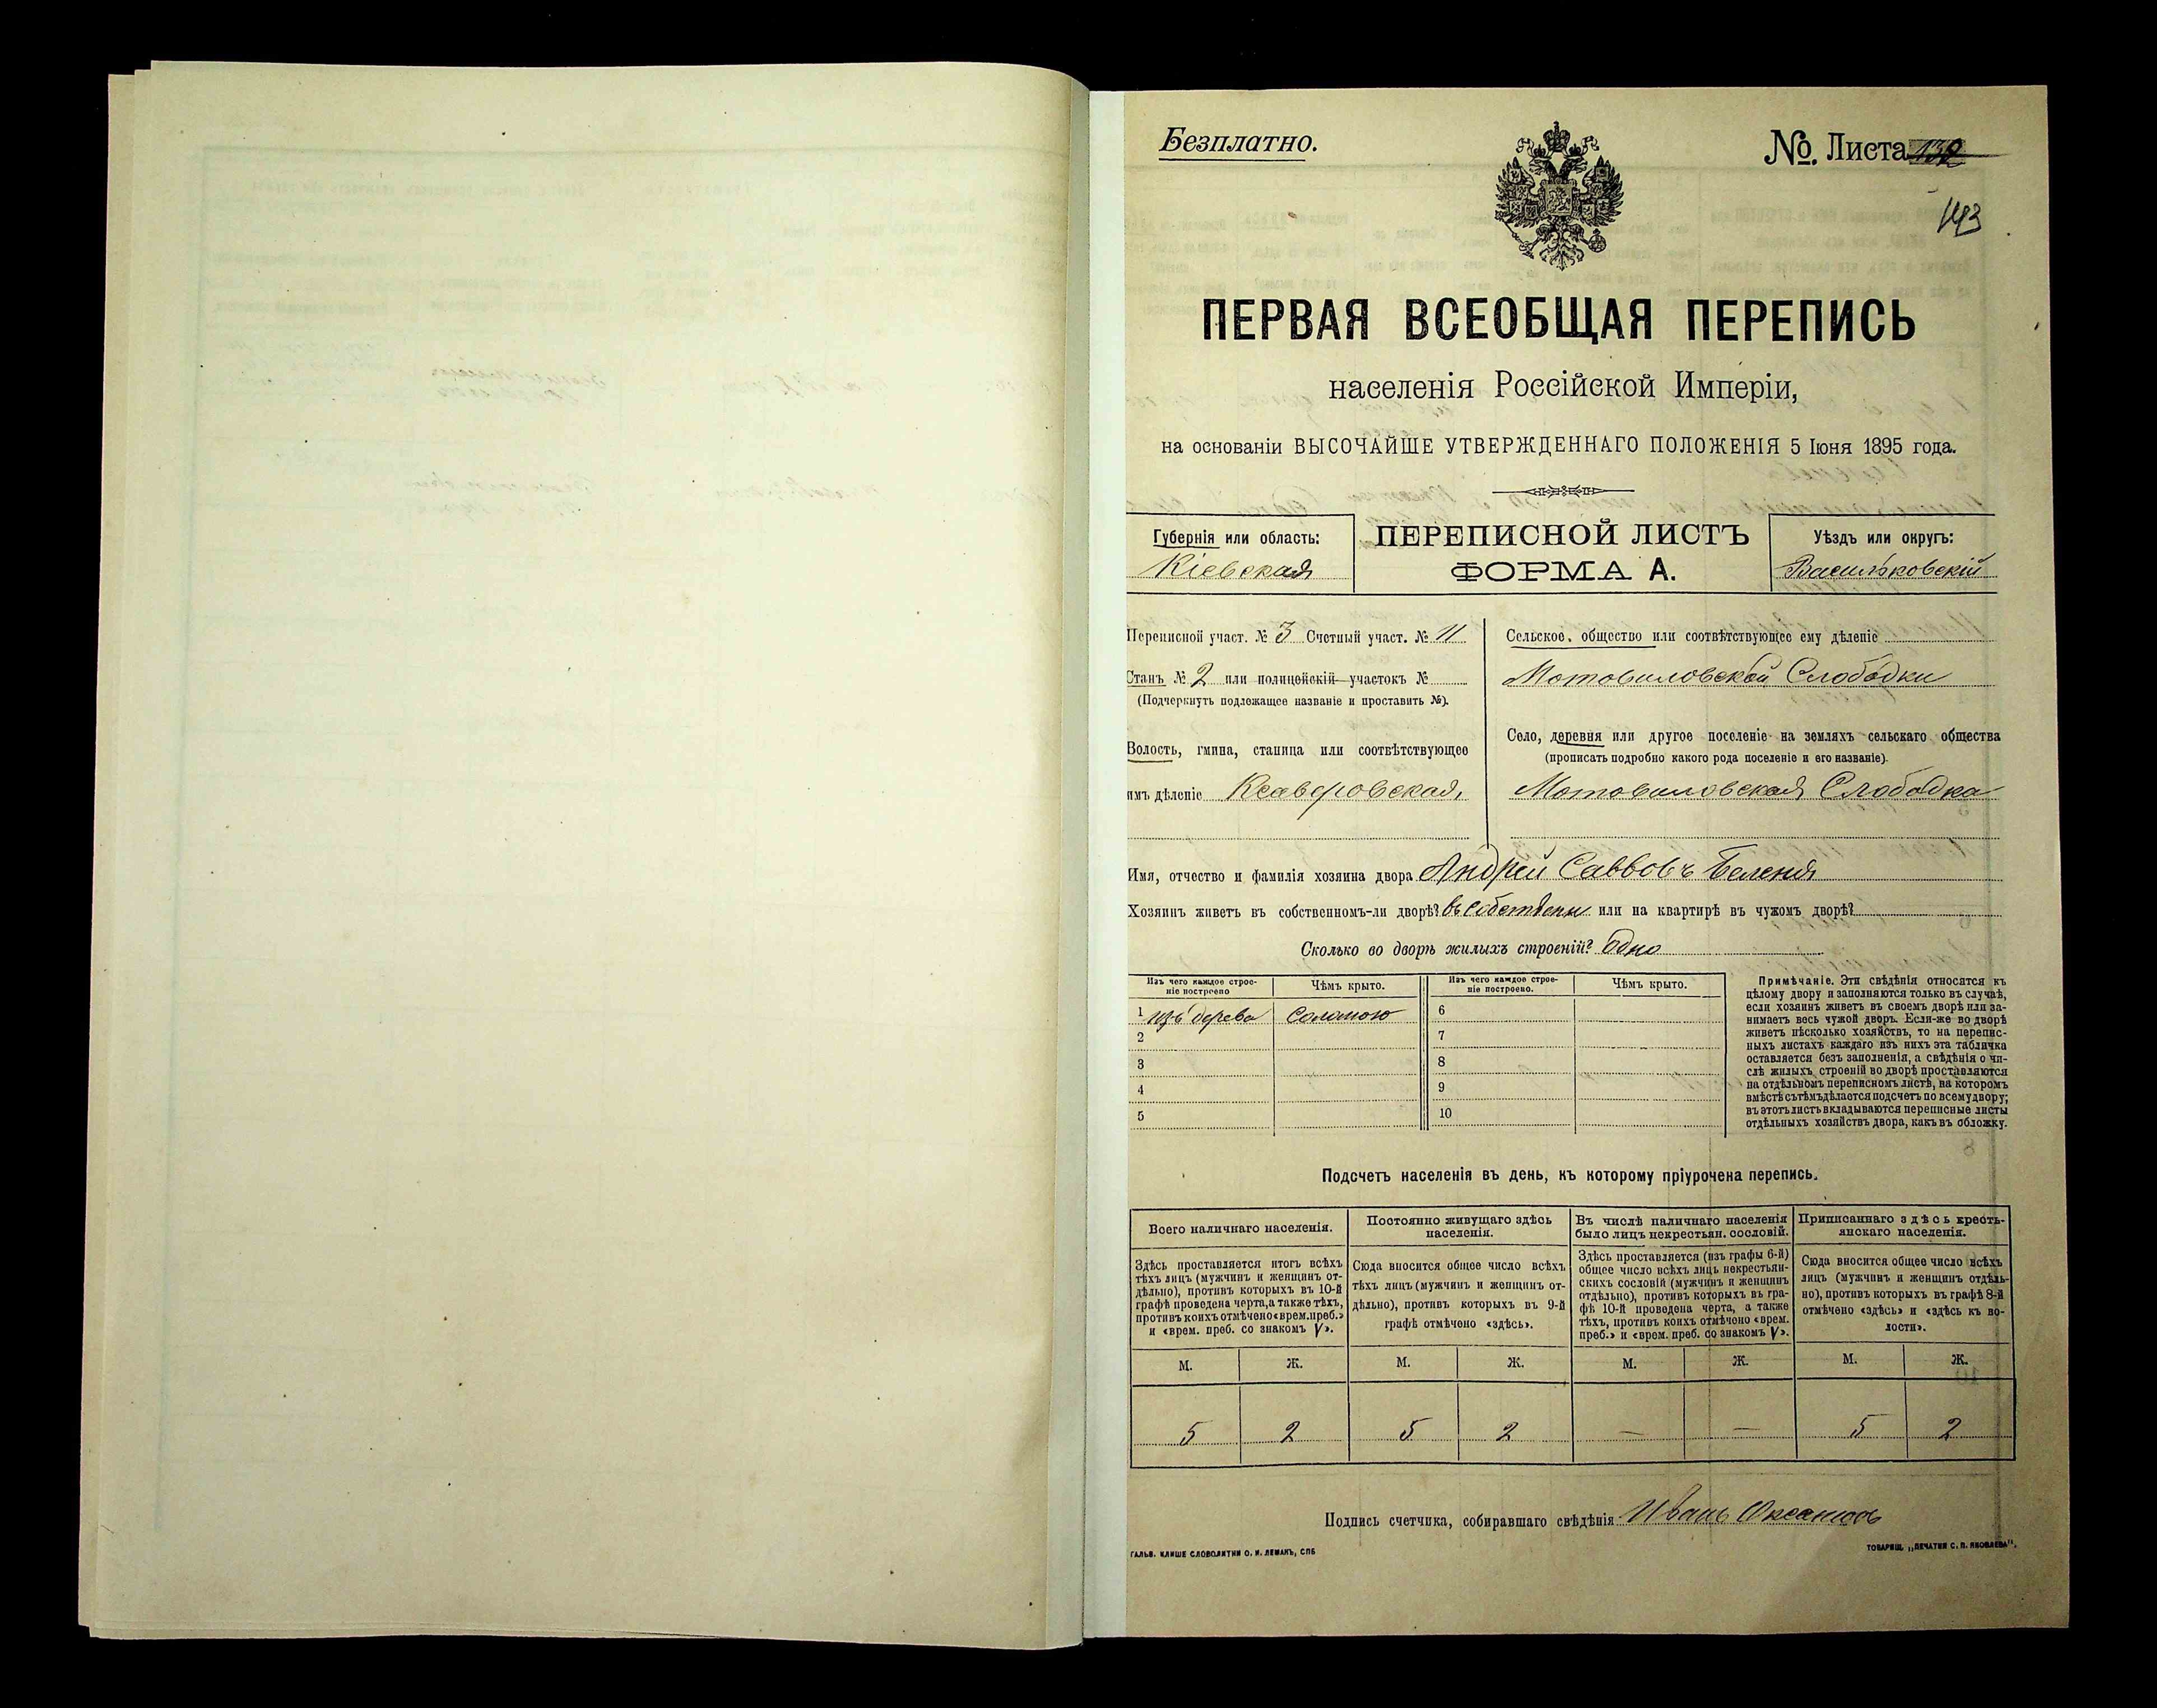 Безплатно.
№. Листа 132
143
ПЕРВАЯ ВСЕОБЩАЯ ПЕРЕПИСЬ
населенія Россійской Имперіи,
на основаніи ВЫСОЧАЙШЕ УТВЕРЖДЕННАГО ПОЛОЖЕНІЯ 5 Іюня 1895 года.
Губернія или область:
Кіевская
ПЕРЕПИСНОЙ ЛИСТЪ
ФОРМА А.
Уѣздъ или округъ:
Васильковскій
Переписной участ. № 3 Счетный участ. № 11
Станъ № 2 или полицейскій участокъ №
(Подчеркнуть подлежащее названіе и проставить №).
Волость, гмина, станица или соотвѣтствующее
имъ дѣленіе Ксаверовская,
Сельское общество или соотвѣтствующее ему дѣленіе
Мотовиловской Слободки
Село, деревня или другое поселеніе на земляхъ сельскаго общества
(прописать подробно какого рода поселеніе и его названіе).
Мотовиловская Слободка
Имя, отчество и фамилія хозяина двора Андрей Саввовъ Беленя
Хозяинъ живетъ въ собственномъ-ли дворѣ? въ собственн или на квартирѣ въ чужомъ дворѣ?
Сколько во дворѣ жилыхъ строеній? Одно
Изъ чего каждое строе-
ніе построено
Чѣмъ крыто.
Изъ чего каждое строе-
ніе построено.
Чѣмъ крыто.
1 изъ дерева Соломою 6
2 7
3 8
4 9
5 10
Примѣчаніе. Эти свѣдѣнія относятся къ
цѣлому двору и заполняются только въ случаѣ,
если хозяинъ живетъ въ своемъ дворѣ или за-
нимаетъ весь чужой дворъ. Если-же во дворѣ
живетъ нѣсколько хозяйствъ, то на перепис-
ныхъ листахъ каждаго изъ нихъ эта табличка
оставляется безъ заполненія, а свѣдѣнія о чи-
слѣ жилыхъ строеній во дворѣ проставляются
на отдѣльномъ переписномъ листѣ, на которомъ
вмѣстѣ съ тѣмъ дѣлается подсчетъ по всему двору;
въ этотъ листъ вкладываются переписные листы
отдѣльныхъ хозяйствъ двора, какъ въ обложку.
Подсчетъ населенія въ день, къ которому пріурочена перепись.
Всего наличнаго населенія.
Здѣсь проставляется итогъ всѣхъ
тѣхъ лицъ (мужчинъ и женщинъ от-
дѣльно), противъ которыхъ въ 10-й
графѣ проведена черта, а также тѣхъ,
противъ коихъ отмѣчено «врем. преб.»
и «врем. преб. со знакомъ V».
Постоянно живущаго здѣсь
населенія.
Сюда вносится общее число всѣхъ
тѣхъ лицъ (мужчинъ и женщинъ от-
дѣльно), противъ которыхъ въ 9-й
графѣ отмѣчено «здѣсь».
Въ числѣ наличнаго населенія
было лицъ некрестьян. сословій.
Здѣсь проставляется (изъ графы 6-й)
общее число всѣхъ лицъ некрестьян-
скихъ сословій (мужчинъ и женщинъ
отдѣльно), противъ которыхъ въ гра-
фѣ 10-й проведена черта, а также
тѣхъ, противъ коихъ отмѣчено «врем.
преб.» и «врем. преб. со знакомъ V».
Приписаннаго здѣсь кресть-
янскаго населенія.
Сюда вносится общее число всѣхъ
лицъ (мужчинъ и женщинъ отдѣль-
но), противъ которыхъ въ графѣ 8-й
отмѣчено «здѣсь» и «здѣсь къ во-
лости».
М. Ж. М. Ж. М. Ж. М. Ж.
5 2 5 2 — — 5 2
Подпись счетчика, собиравшаго свѣдѣнія Иванъ
ГАЛЬВ. КЛИШЕ СЛОВОЛИТНИ О. И. ЛЕМАНЪ, СПБ
ТОВАРИЩ. „ПЕЧАТНЯ С. П. ЯКОВЛЕВА".